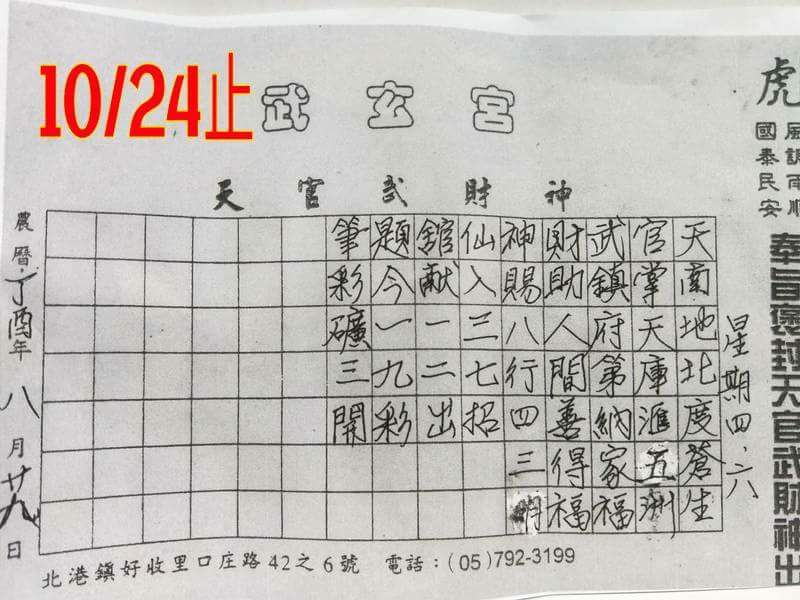 10/24止
武玄宮
天官武財神
虎
風調雨順
國泰民安
奉旨褒封天官武財神出
星期四、六
天南地北度蒼生
官掌天庫滙五洲
武鎮府第納家福
財助人間善得福
神賜八行四三
仙入三七招
舘献一二出
題今一九彩
筆彩礦三開
農曆丁酉年八月廿九日
北港鎮好收里口庄路42之6號 電話：(05)792-3199